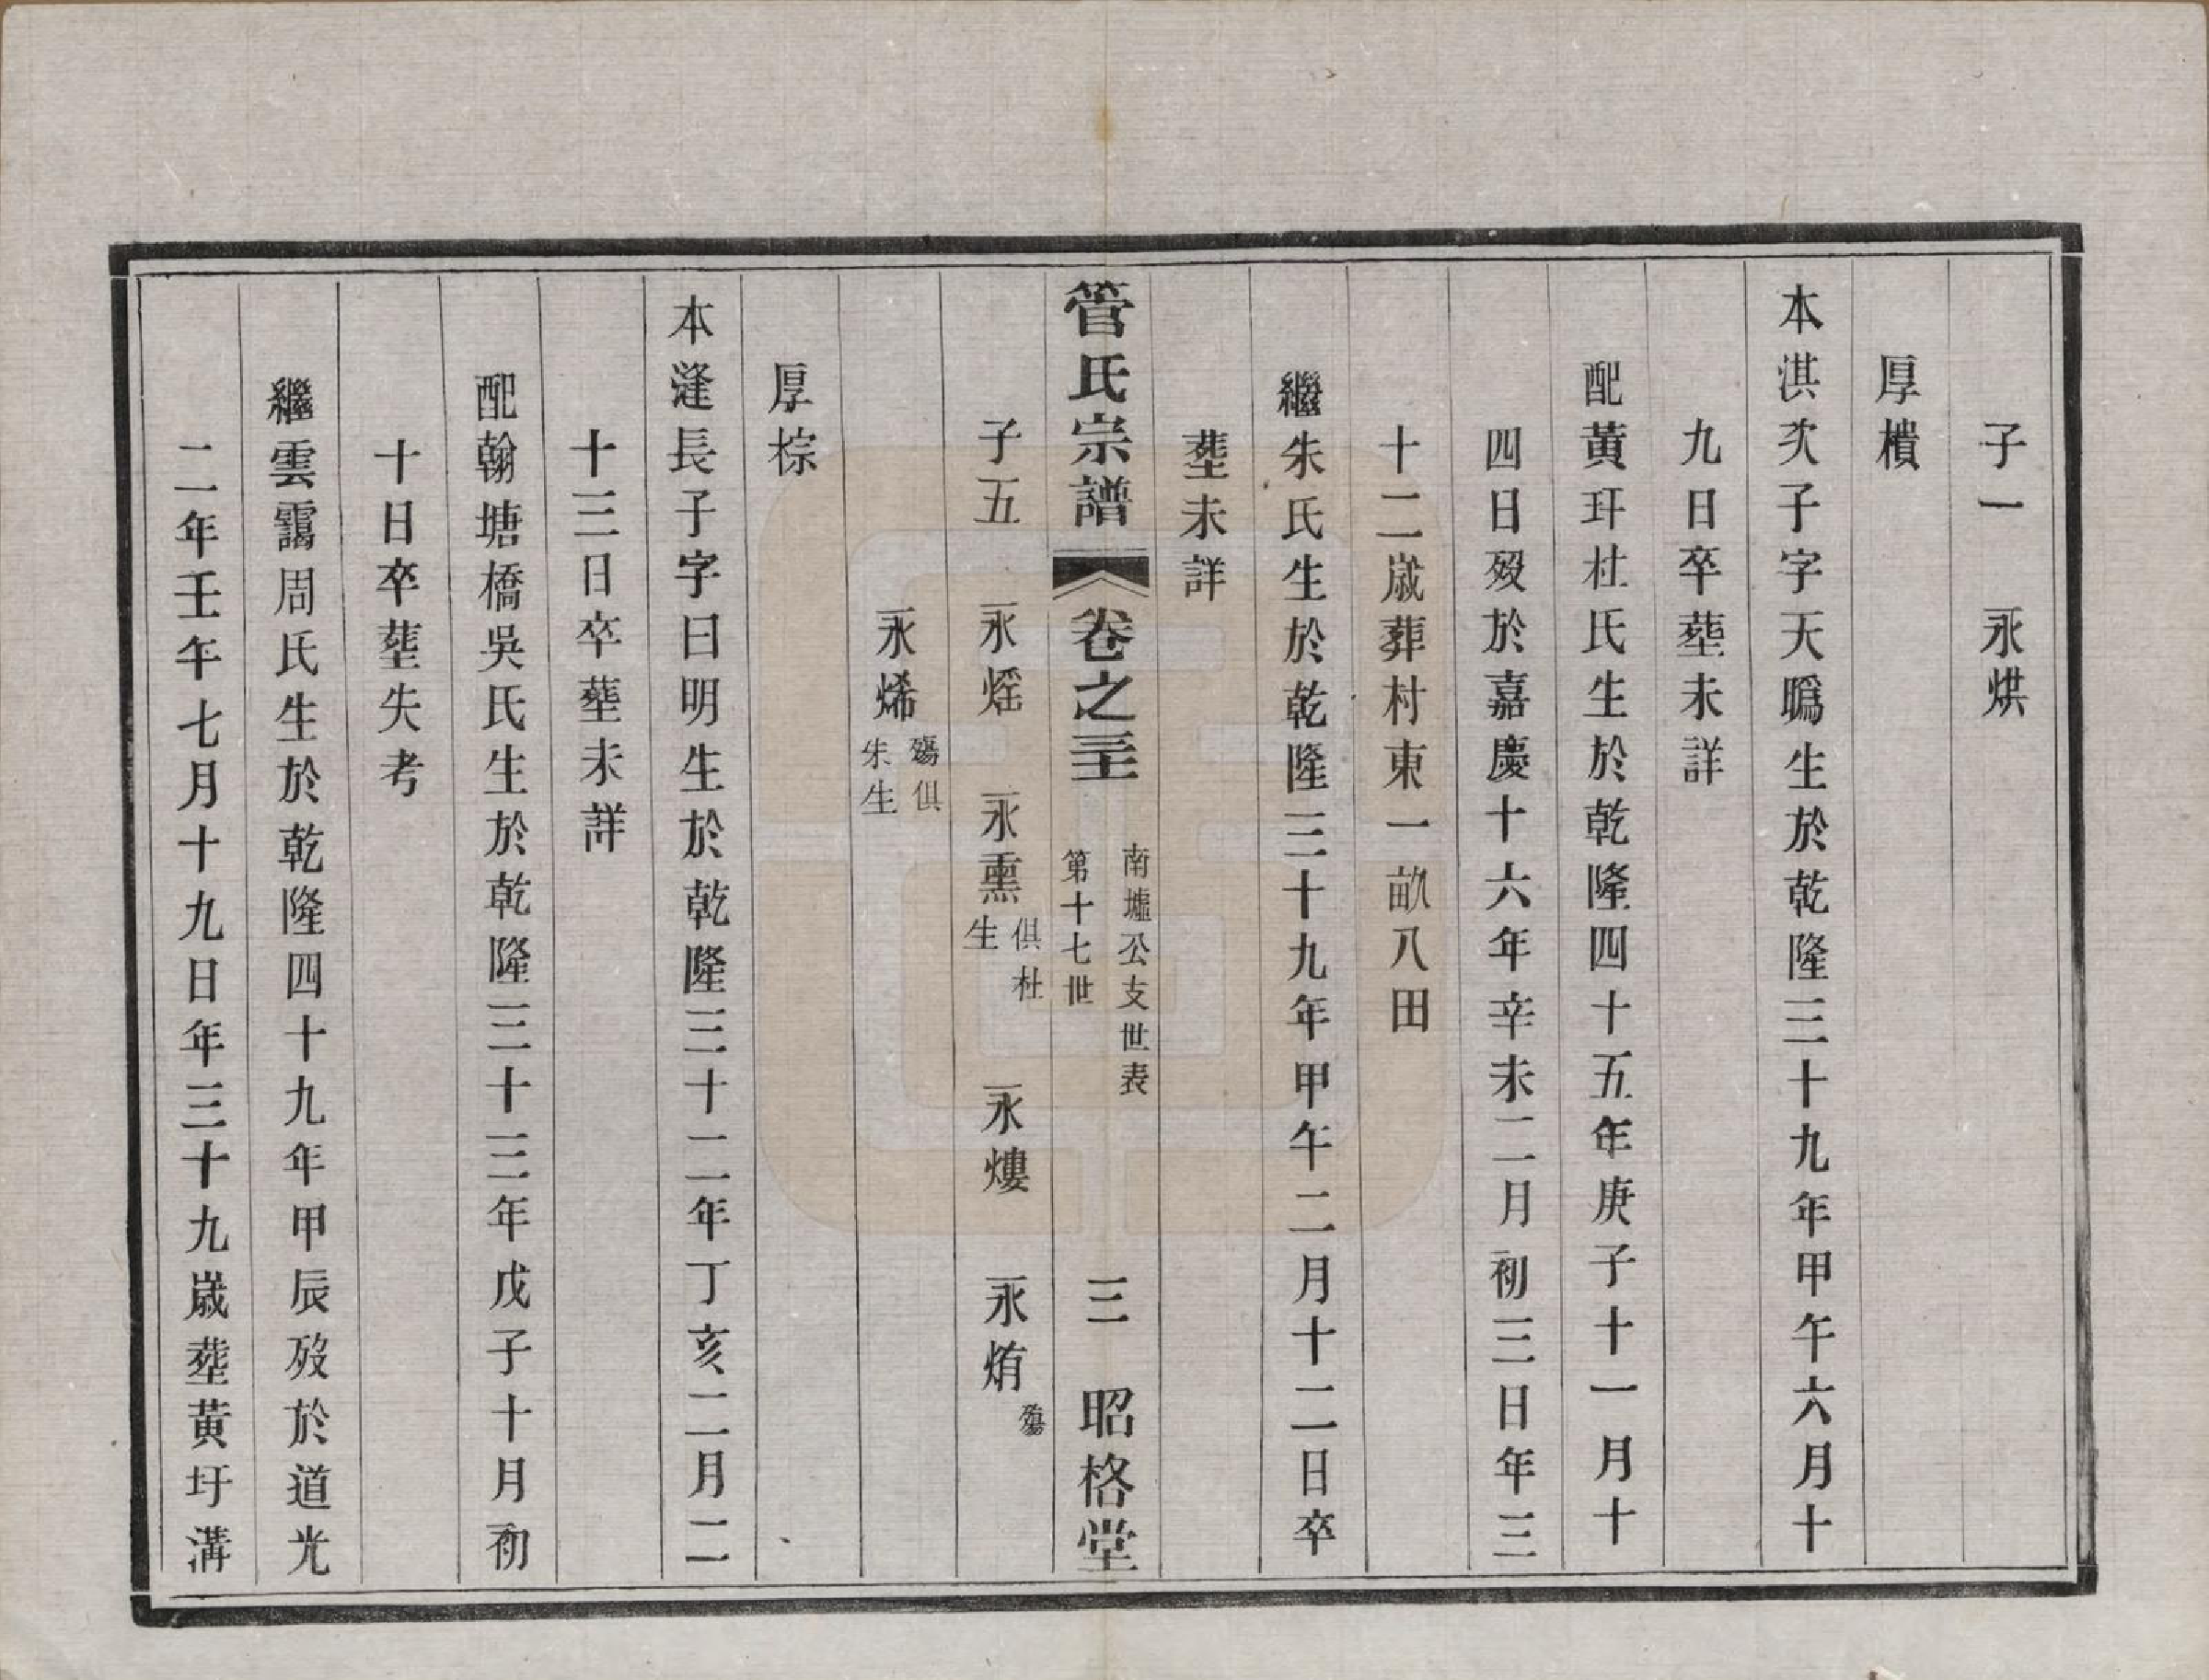 子一　永烘
厚樻
本淇次子字天鵰生於乾隆三十九年甲午六月十
九日卒塟未詳
配黄玗杜氏生於乾隆四十五年庚子十一月十
四日歿於嘉慶十六年辛未二月初三日年三
十二歲葬村東一畝八田
繼朱氏生於乾隆三十九年甲午二月十二日卒
塟未詳
管氏宗譜　卷之三　南墟公支世表　第十七世　三　昭格堂
子五　永熎　永熏俱杜生　永熡　永烠殤
永烯殤俱朱生
厚棕
本漨長子字曰明生於乾隆三十二年丁亥二月二
十三日卒塟未詳
配翰塘橋吳氏生於乾隆三十三年戊子十月初
十日卒塟失考
繼雲靄周氏生於乾隆四十九年甲辰歿於道光
二年壬午七月十九日年三十九歲塟黄圩溝